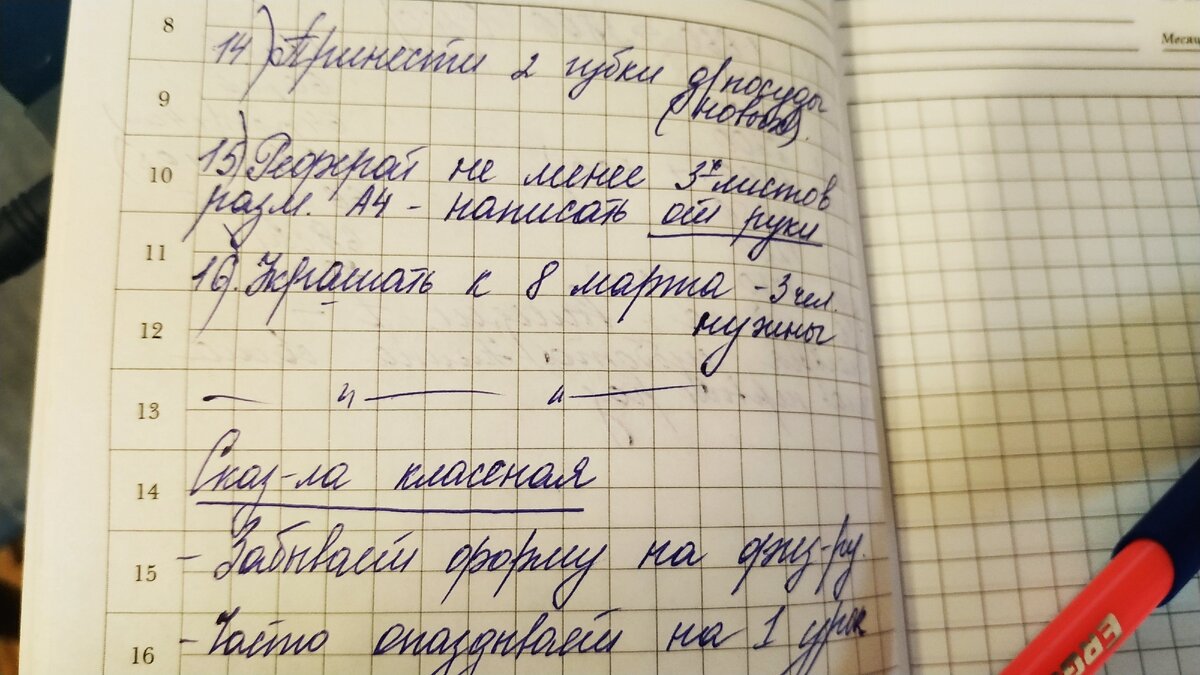 8
14) Принести 2 губки д/посуды
(новых).
9
15) Реферат не менее 3х листов
10
разм. А4 - написать от руки
11
16). Украшать к 8 марта - 3 чел.
нужны
12
— " — " —
13
Сказ-ла классная
14
- Забывает форму на физ-ру.
15
- Часто опаздывает на 1 урок
16
Месяц